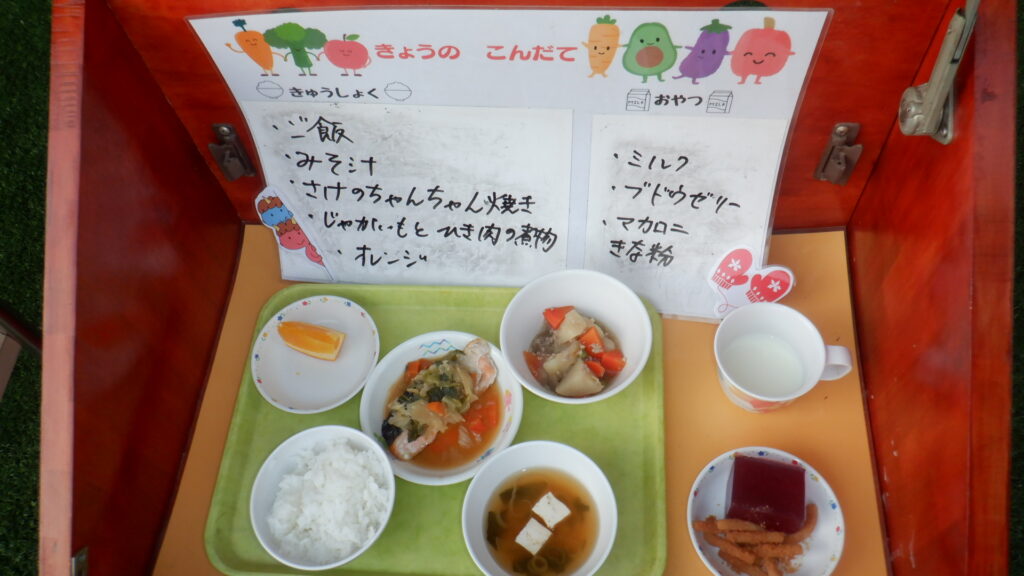 きょうの こんだて
きゅうしょく
・ご飯
・みそ汁
・さけのちゃんちゃん焼き
・じゃがいもとひき肉の煮物
・オレンジ
おやつ
MILK MILK
・ミルク
・ブドウゼリー
・マカロニ
きな粉